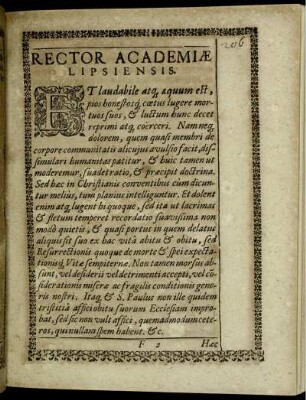 206
RECTOR ACADEMIÆ
LIPSIENSIS.
ET laudabile atq, æquum est,
pios honestosq, cœtus lugere mor-
tuos suos, & luctum hunc decet
reprimi atq, coërceri. Nam neq,
dolorem, quem quasi membri de
corpore communitatis alicujus avulsio facit, dis-
simulari humanitas patitur, & huic tamen ut
moderemur, suadet ratio, & præcipit doctrina.
Sed hæc in Christianis conventibus cùm dicun-
tur melius, tum planius intelliguntur. Et dolent
enim atq, lugent hi quoque, sed ita ut lacrimas
& fletum temperet recordatio suavissima non
modò quietis, & quasi portus in quem delatus
aliquis sit suo ex hac vitâ abitu & obitu, sed
Resurrectionis quoque de morte & spei expecta-
tionisq, Vitæ sempiternæ. Non tamen morsus ab-
sunt, vel desiderii vel detrimenti accepti, vel cō-
siderationis miseræ ac fragilis conditionis gene-
ris nostri. Itaq, & S. Paulus non ille quidem
tristitiâ affici obitu suorum Ecclesiam impro-
bat, sed sic nos vult affici, quemadmodum cete-
ros, qui nullam spem habent. &c.
F 2 Hæc